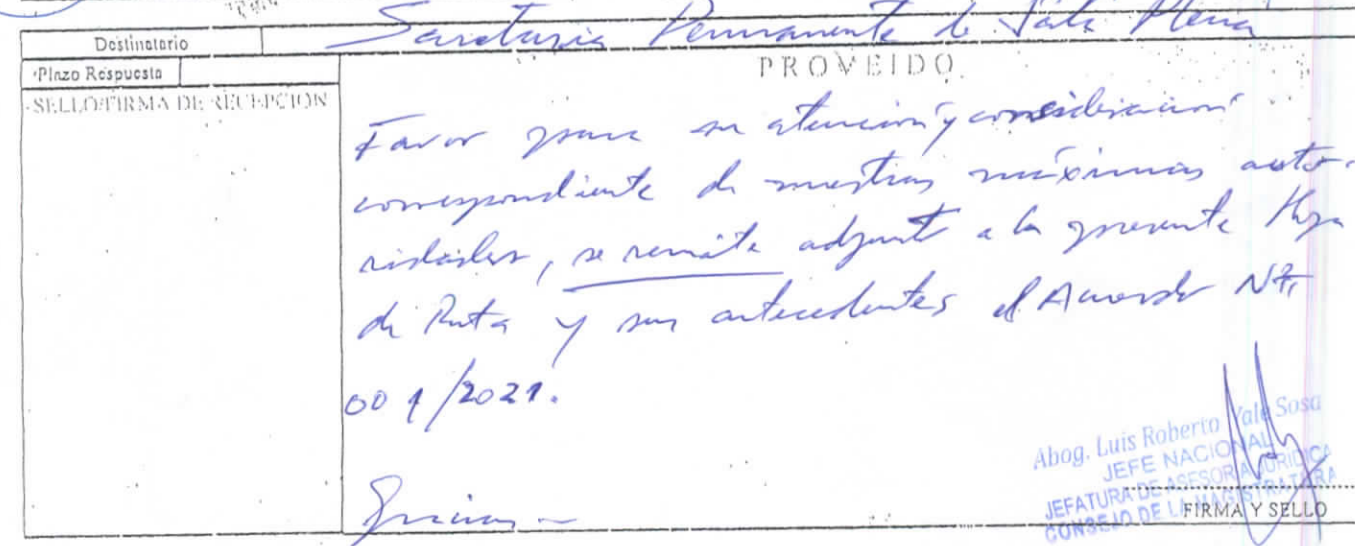 Destinatario Secretaria Permanente de Sala Plena
Plazo Respuesta
PROVEIDO
SELLO/FIRMA DE RECEPCION
Favor para su atención y consideración
correspondiente de nuestras máximas auto-
ridades, se remite adjunto a la presente Hoja
de Ruta y sus antecedentes el Acuerdo Nº
001/2021.
Gracias
Abog. Luis Roberto Yale Sosa
JEFE NACIONAL
JEFATURA DE ASESORIA JURIDICA
CONSEJO DE LA MAGISTRATURA
FIRMA Y SELLO